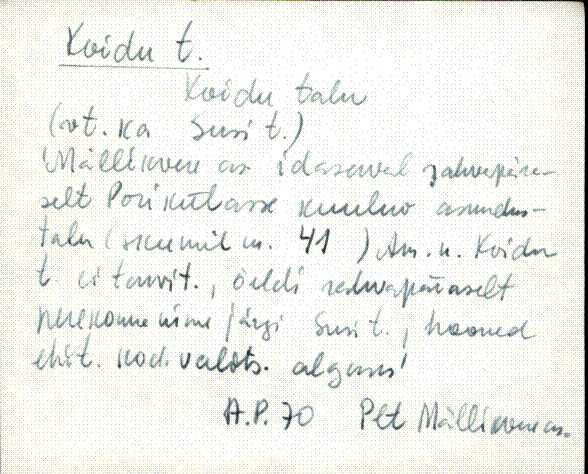 Koidu t.
Koidu talu
(vt. ka Susi t.)
Mällikvere as. idaserval rahvapära-
selt Porikülasse kuuluv asundus-
talu (skeemil nr. 41 ) Am. n. Koidu
t. ei tarvit., öeldi rahvapäraselt
perekonnanime järgi Susi t., hooned
ehit. kod. valits. algusas
A.P. 70 Plt Mällikvere as.